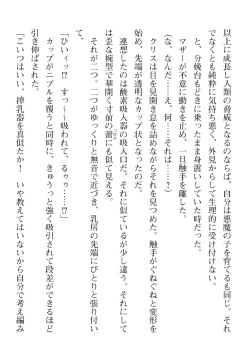 以上に成長し人類の脅威となるのならば、自分は悪魔の子を育てるも同じ。それ
でなくとも純粋に気持ち悪く、外見からして生理的に受け付けない。
と、分娩台もどきに乗ったまま身震いしていた時だった。
マザーが不意に動きを止め、一旦触手を離した。
「な、なんだ……え、何……それは……？」
クリスは目を見開き息を詰めながらそれを見つめた。触手がぐねぐねと変形を
始め、先端が透明なカップ状となったのだ。
連想したのは酸素吸入器の吸入口だ。それに似ているが少し違う。それにして
は歪な椀型で華開く寸前の蕾にも似ている。
それが二つ。二つがゆっくりと無音で近づき、乳房の先端にぴとりと張り付い
て、
「ひぃィッ!?　すっ〜吸われて、るゥゥ……!?」
カップがニプルを覆うと同時に、きゅうっと強く吸引されて段差ができるほど
引き伸ばされた。
「こいつはいい、搾乳器を真似たか！　いや教えてはいないから自分で考え編み